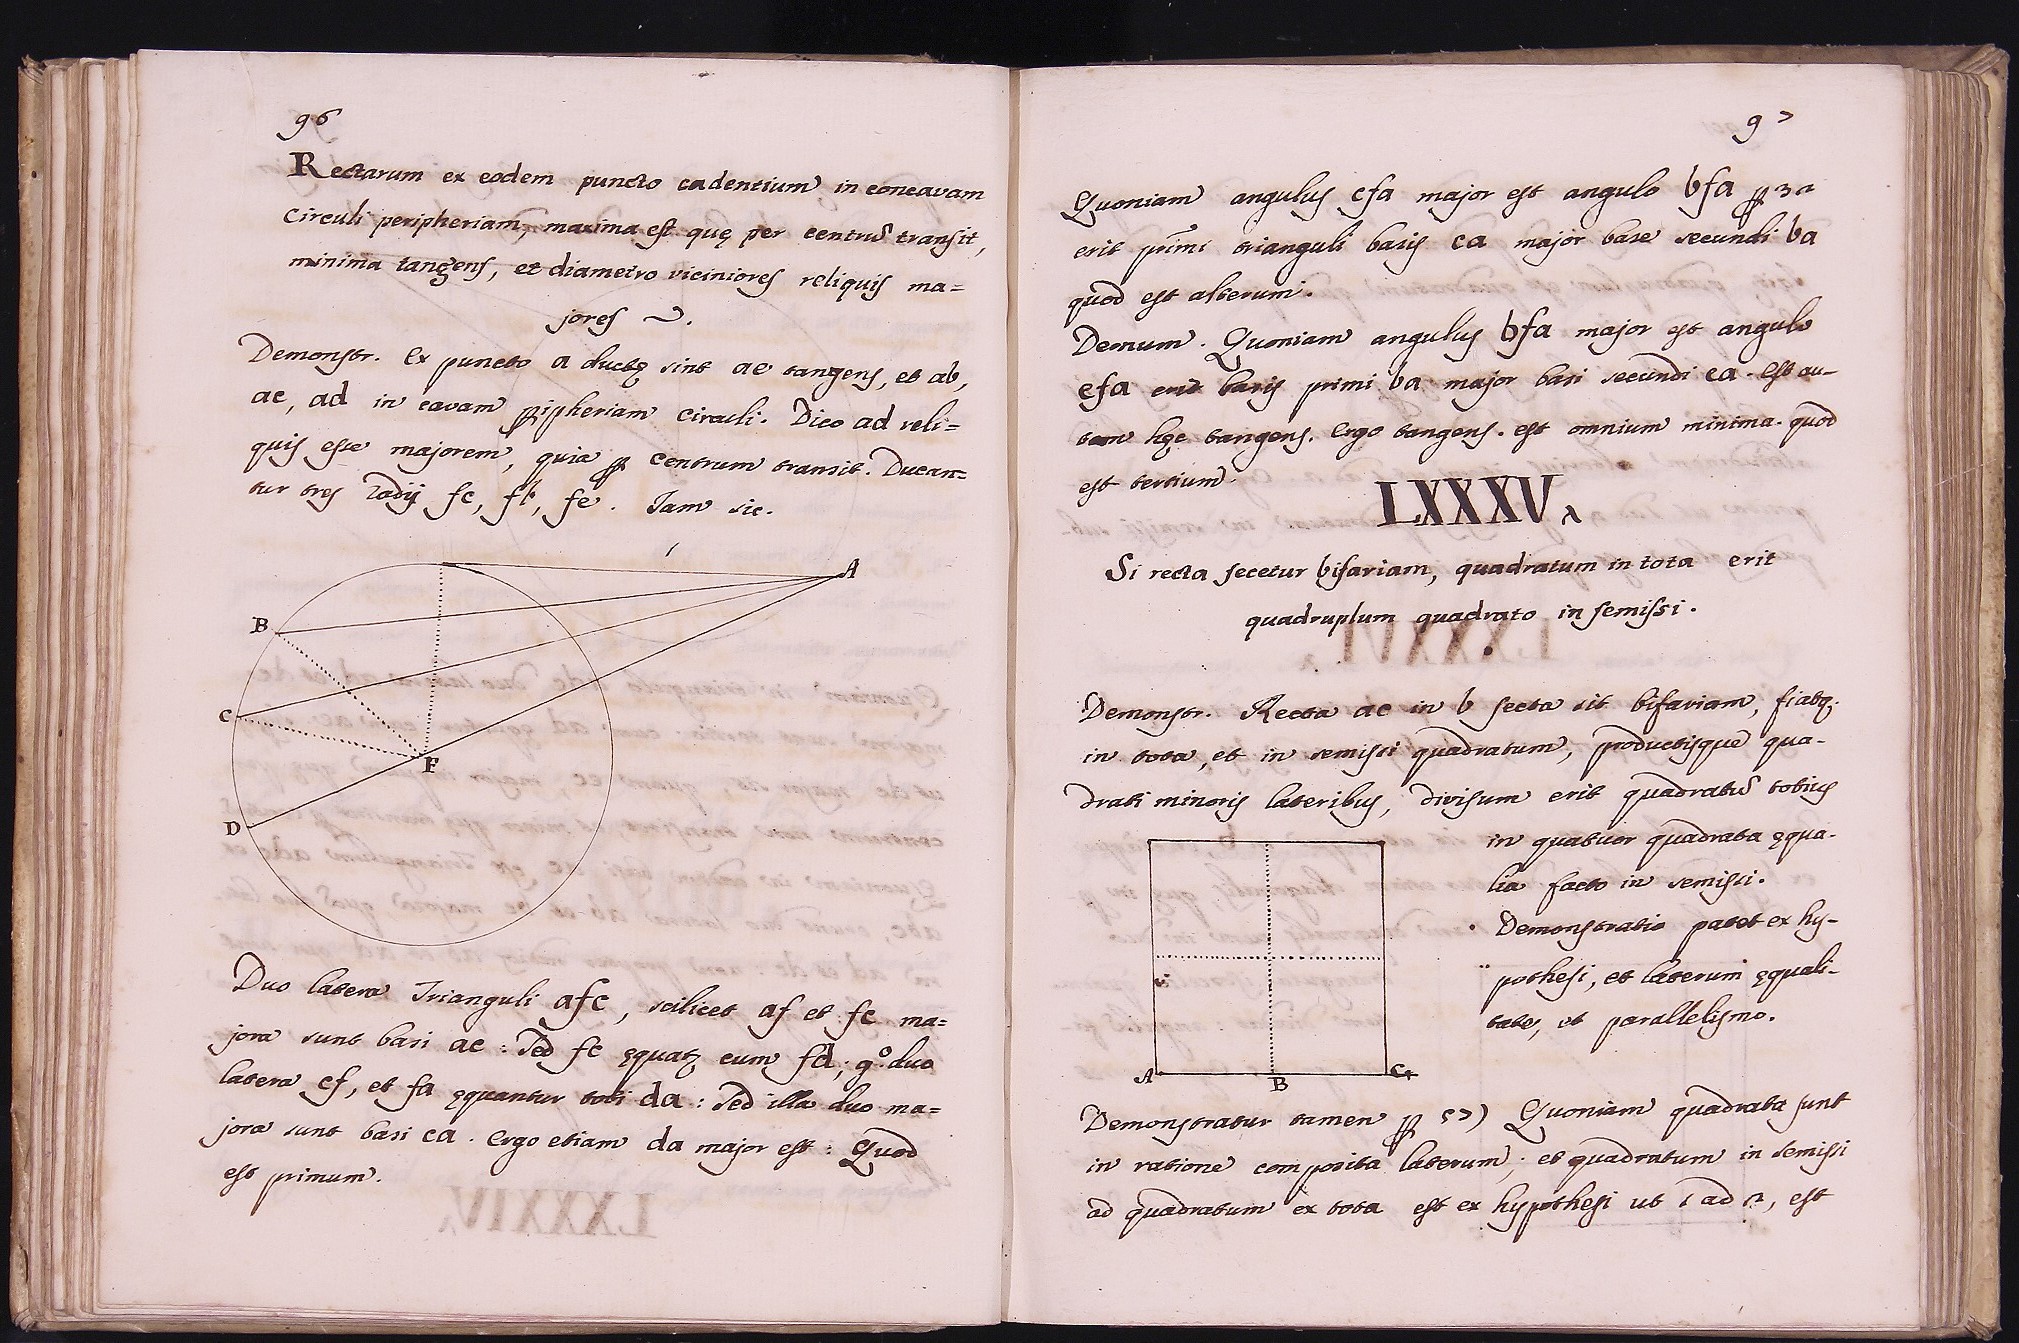 96
Rectarum ex eodem puncto cadentium in concavam
circuli peripheriam, maxima est quę per centrũ transit,
minima tangens, et diametro viciniores reliquis ma=
jores
Demonstr. Ex puncto a ductę sint ae tangens, et ab,
ac, ad in cavam ꝑipheriam circuli. Dico ad reli=
quis esse majorem, quia ꝑ centrum transit. Ducan=
tur tres radij fc, fb, fe. Jam sic.
A
B
C
F
D
Duo latera Trianguli afc, scilicet af et fc ma=
jora sunt basi ac: Sed fc ęquatꝛ cum fd; gº duo
latera cf, et fa ęquantur toti da: Sed illa duo ma=
jora sunt basi ca. Ergo etiam da major est: Quod
est primum.
97
Quoniam angulus cfa major est angulo bfa ꝑ
erit primi trianguli basis ca major base secundi ba
quod est alterum.
Demum. Quoniam angulus bfa major est angulo
efa erit basis primi ba major basi secundi ea. Est au-
tem hęc tangens. Ergo tangens est omnium minima. quod
est tertium.
LXXXV
Si recta secetur bifariam, quadratum in tota erit
quadruplum quadrato in semissi.
Demonstr. Recta ac in b secta sit bifariam, fiatq.
in tota, et in semissi quadratum, productisque qua-
drati minoris lateribus, divisum erit quadratũ totius
in quatuor quadrata ęqua-
lia facto in semissi.
Demonstratio patet ex hy-
pothesi, et laterum ęquali-
tate, et parallelismo.
A B C
Demonstratur tamen ꝑ 57) Quoniam quadrata sunt
in ratione composita laterum; et quadratum in semissi
ad quadratum ex tota est ex hypothesi ut 1 ad 2, est